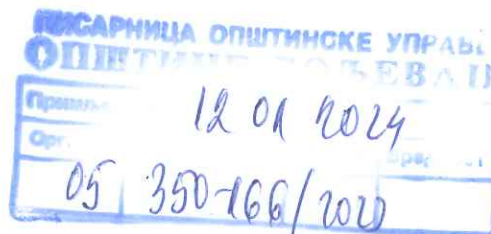 ПИСАРНИЦА ОПШТИНСКЕ УПРАВЕ
ОПШТИНЕ БОЉЕВАЦ
12 01 2024
Орг.
05 350-166/2020